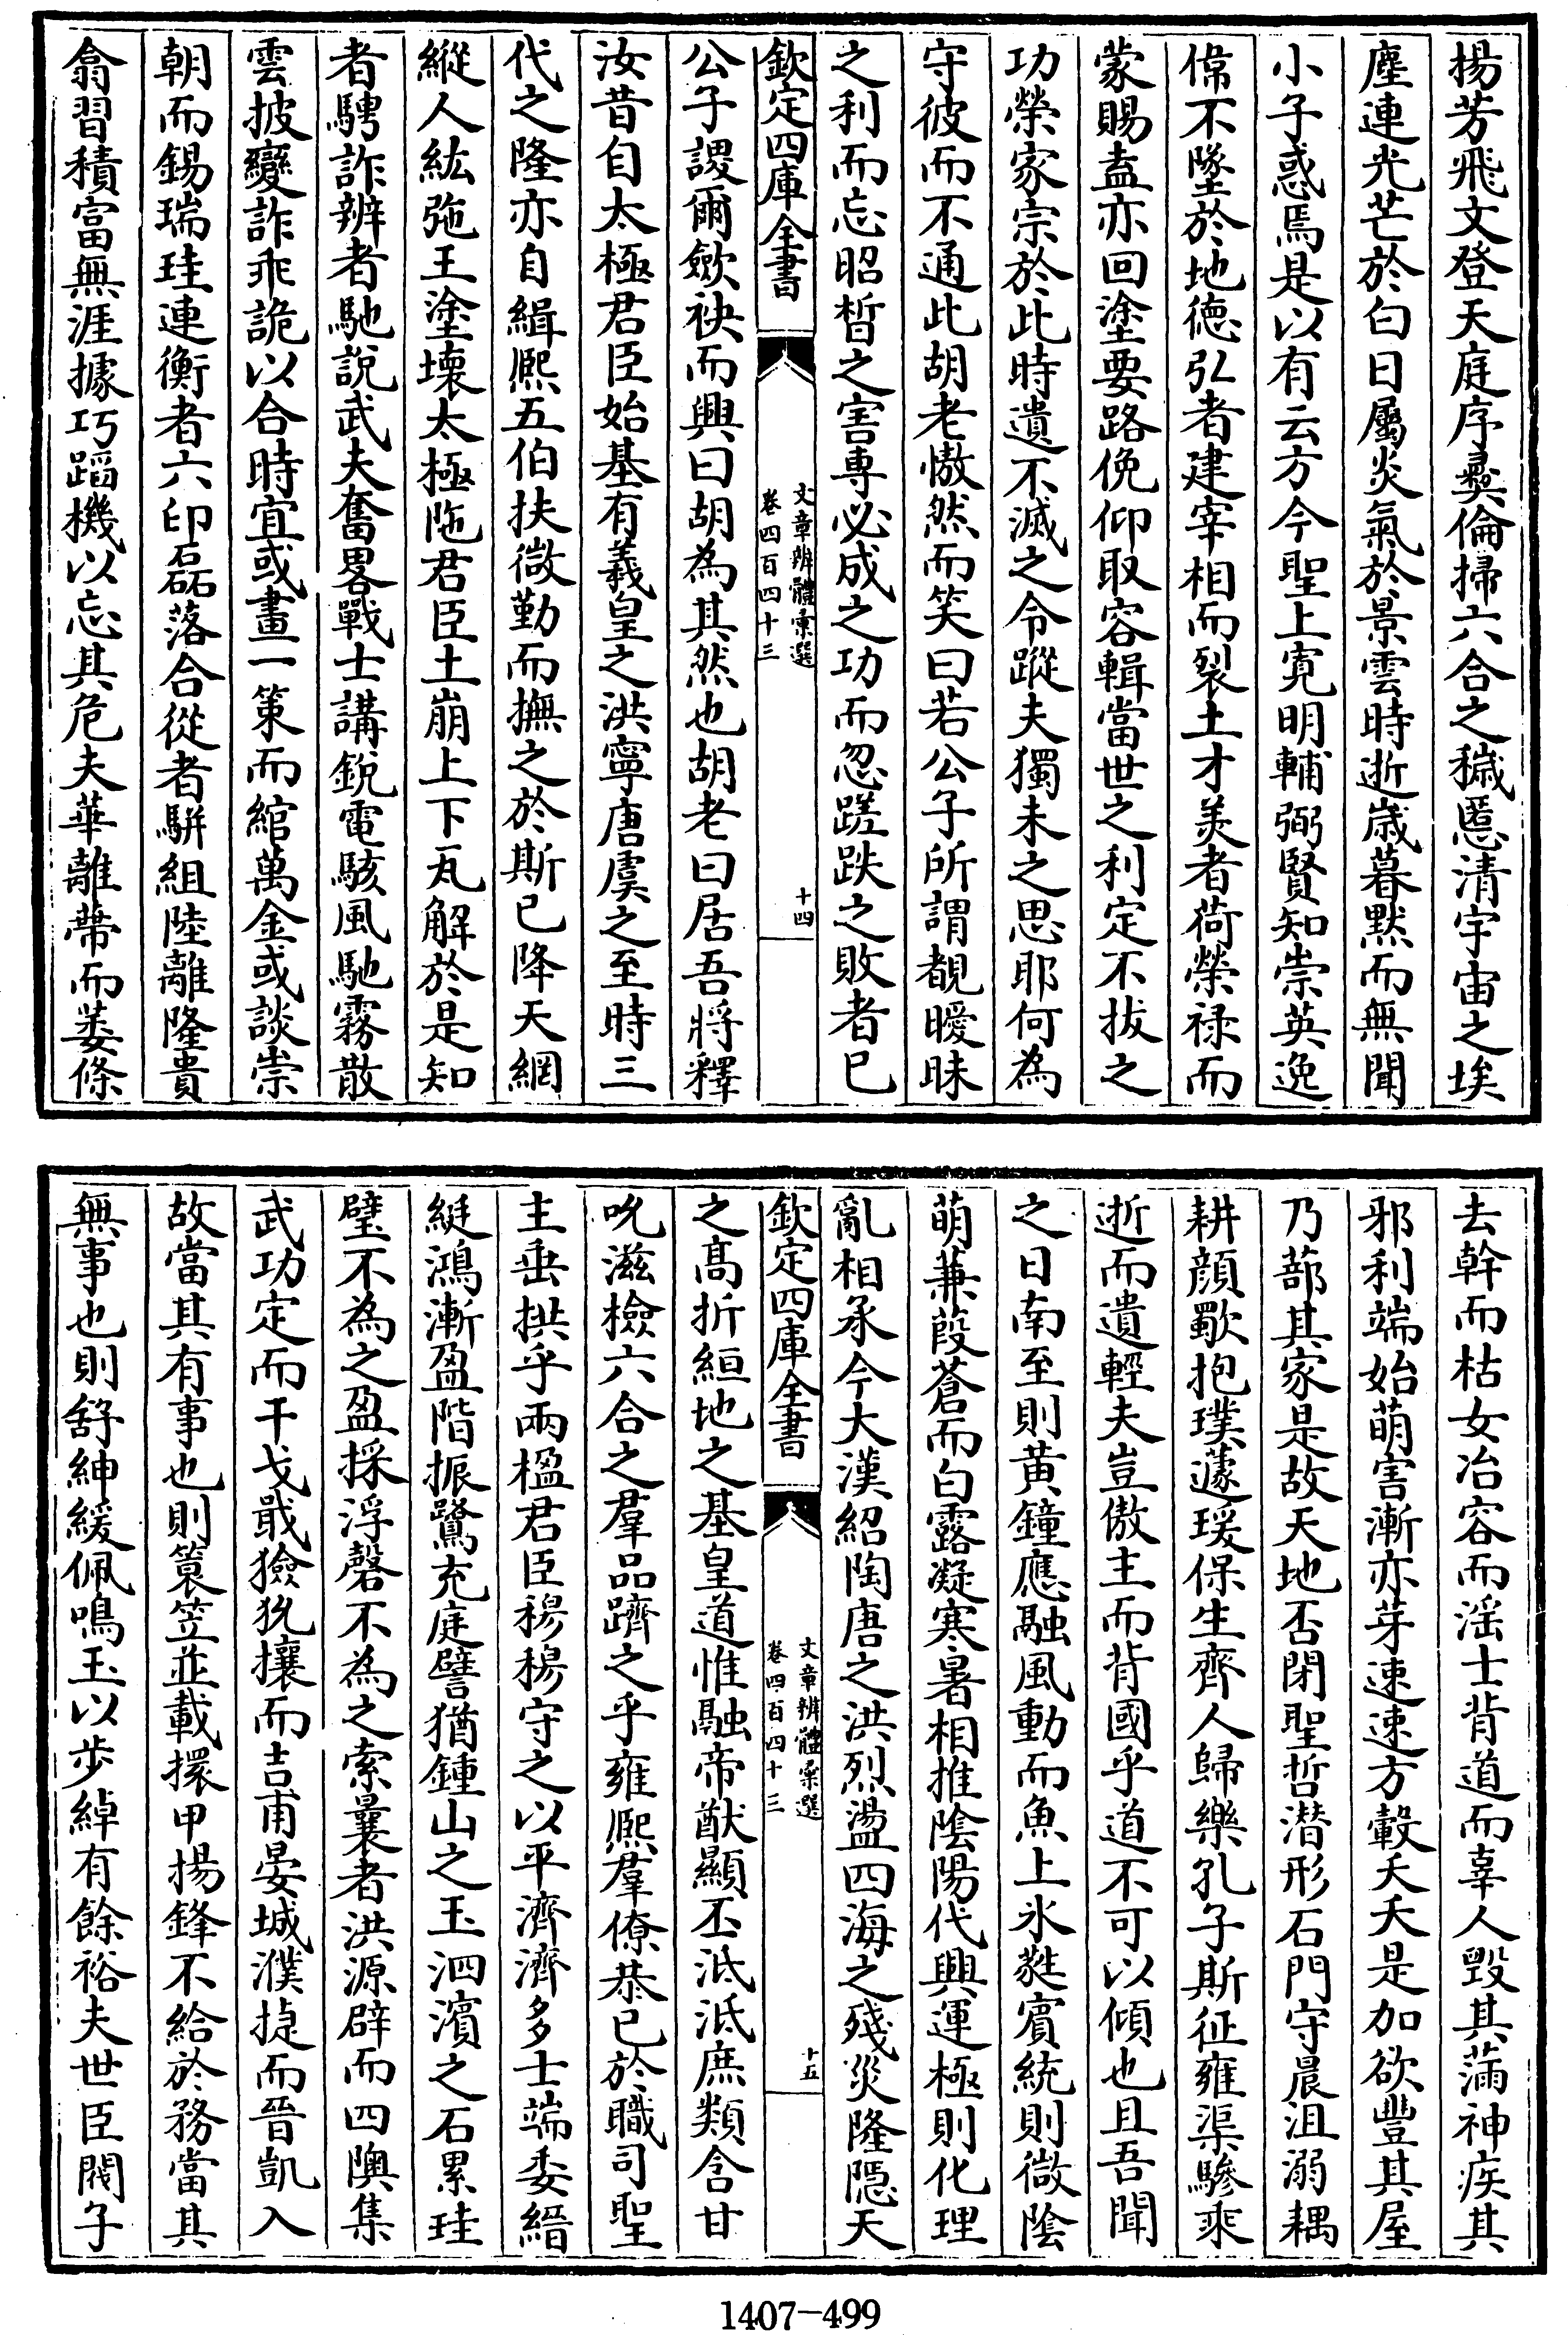 揚芳飛文登天庭序彞倫掃六合之穢慝清宇宙之埃
塵連光芒於白日屬炎氣於景雲時逝嵗暮默而無聞
小子惑焉是以有云方今聖上寛明輔弼賢知崇英逸
偉不墜於地德弘者建宰相而裂土才羙者荷榮禄而
蒙賜盍亦回塗要路俛仰取容輯當世之利定不拔之
功榮家宗於此時遺不滅之令蹤夫獨未之思耶何為
守彼而不通此胡老慠然而笑曰若公子所謂覩曖昧
之利而忘昭晳之害専必成之功而忽蹉跌之敗者已
欽定四庫全書
文章辨體彚選
卷四百四十三
十四
公子謖爾歛袂而興曰胡為其然也胡老曰居吾將釋
汝昔自太極君臣始基有羲皇之洪寧唐虞之至時三
代之隆亦自緝熈五伯扶微勤而撫之於斯已降天網
縱人紘弛王塗壞太極陁君臣土崩上下瓦解於是知
者騁詐辨者馳說武夫奮畧戰士講銳電駭風馳霧散
雲披變詐乖詭以合時宜或畫一策而綰萬金或談崇
朝而錫瑞珪連衡者六印磊落合從者駢組陸離隆貴
翕習積富無涯據巧蹈機以忘其危夫華離蔕而萎條
去幹而枯女冶容而淫士背道而辜人毁其滿神疾其
邪利端始萌害漸亦芽速速方轂夭夭是加欲豐其屋
乃蔀其家是故天地否閉聖哲潜形石門守晨沮溺耦
耕顔歜抱璞蘧瑗保生齊人歸樂孔子斯征雍渠驂乗
逝而遺輕夫豈傲主而背國乎道不可以傾也且吾聞
之日南至則黄鐘應融風動而魚上氷蕤賓統則微陰
萌蒹葭蒼而白露凝寒暑相推陰陽代興運極則化理
亂相承今大漢紹陶唐之洪烈盪四海之殘災隆隱天
欽定四庫全書
文章辨體彚選
卷四百四十三
十五
之髙折絙地之基皇道惟融帝猷顯丕泜泜庶類含甘
吮滋檢六合之羣品躋之乎雍熈羣僚恭已於職司聖
主垂拱乎兩楹君臣穆穆守之以平濟濟多士端委縉
綎鴻漸盈階振鷺充庭譬猶鍾山之玉泗濱之石累珪
璧不為之盈採浮磬不為之索曩者洪源辟而四隩集
武功定而干戈戢獫狁攘而吉甫晏城濮捷而晉凱入
故當其有事也則簑笠並載擐甲揚鋒不給於務當其
無事也則舒紳緩佩鳴玉以步綽有餘裕夫世臣閥子
1407-499